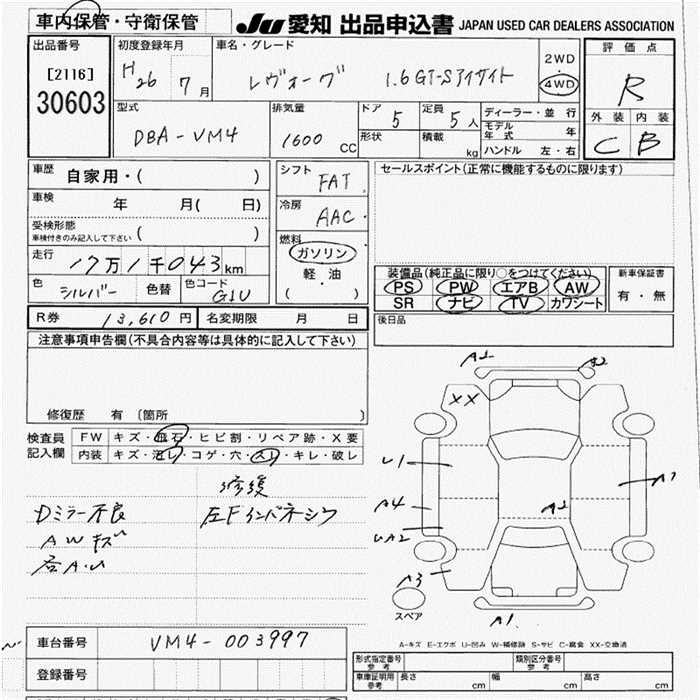 車内保管・守衛保管
JU 愛知 出品申込書 JAPAN USED CAR DEALERS ASSOCIATION
出品番号 [2116] 30603
初度登録年月 H26 7月
車名・グレード レヴォーグ 1.6GT-Sアイサイト
2WD 4WD
評価点 R
外装 C 内装 B
型式 DBA-VM4
排気量 1600 CC
ドア 5 定員 5人
形状 積載 kg
ディーラー・並行
モデル年式 年
ハンドル 左・右
車歴 自家用・( )
車検 年 月( 日)
受検形態 車検付きのみ記入して下さい ( )
走行 17万1千043km
色 シルバー 色替 色コード G1U
シフト FAT
冷房 AAC
燃料 ガソリン 軽・油 ( )
セールスポイント(正常に機能するものに限ります)
装備品(純正品に限り○をつけてください)
PS PW エアB AW
SR ナビ TV カワシート
新車保証書 有・無
後日品
R券 13,610円 名変期限 月 日
注意事項申告欄(不具合内容等は具体的に記入して下さい)
修復歴 有 〔箇所 〕
検査員記入欄
FW キズ・飛石・ヒビ割・リペア跡・X要
内装 キズ・汚レ・コゲ・穴・スレ・キレ・破レ
修復
Dミラー不良 左Fインパネシワ
AWキズ
A1 A2
XX
U1
A4
UA2
A3
A2
A1
スペア
A-キズ E-エクボ U-凹み W-補修跡 S-サビ C-腐食 XX-交換済
車台番号 VM4-003997
登録番号
形式指定番号 参考 類別区分番号 参考
車庫証明用 参考 長さ cm 幅 cm 高さ cm